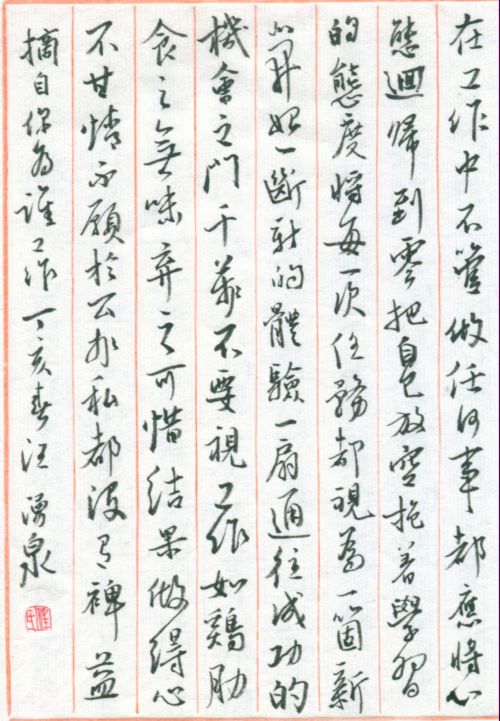 在工作中不管做任何事都應將心
態迴歸到零把自己放空抱着學習
的態度將每一次任務都視為一箇新
開始一斷新的體驗一扇通往成功的
機會之門千萬不要視工作如鷄肋
食之無味棄之可惜結果做得心
不甘情不願於公於私都沒有裨益
摘自你為誰工作丁亥春汪湧泉